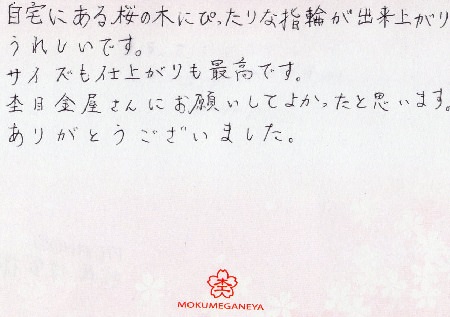 自宅にある桜の木にぴったりな指輪が出来上がり
うれしいです。
サイズも仕上がりも最高です。
杢目金屋さんにお願いしてよかったと思います。
ありがとうございました。
杢
MOKUMEGANEYA